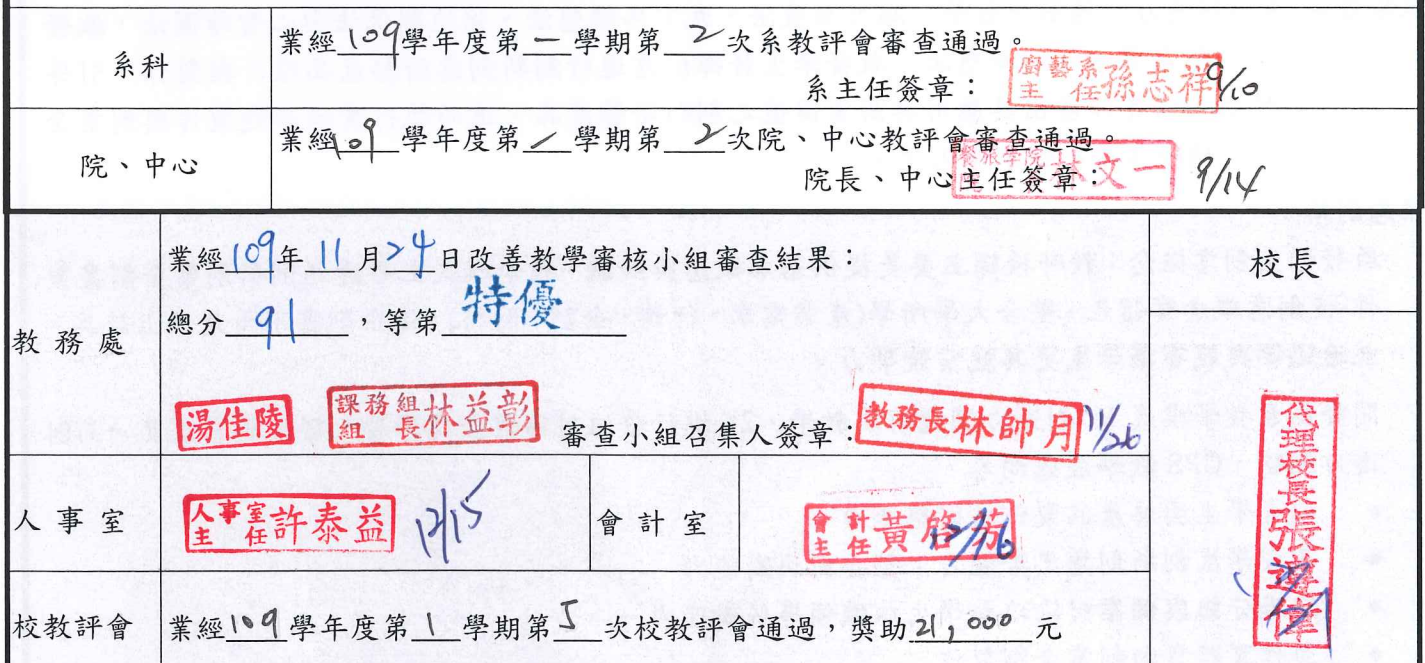 系科
業經109學年度第一學期第2次系教評會審查通過。
系主任簽章：
廚藝系主任孫志祥
9/10
院、中心
業經109學年度第1學期第2次院、中心教評會審查通過。
院長、中心主任簽章：
餐旅學院
林文一
9/14
教務處
業經109年11月24日改善教學審核小組審查結果：
總分91，等第特優
湯佳陵
課務組組長林益彰
審查小組召集人簽章：
教務長林帥月
11/26
校長
代理校長張
人事室
人事室主任許泰益
12/15
會計室
會計主任黃啓
12/16
校教評會
業經109學年度第1學期第5次校教評會通過，獎助21,000元